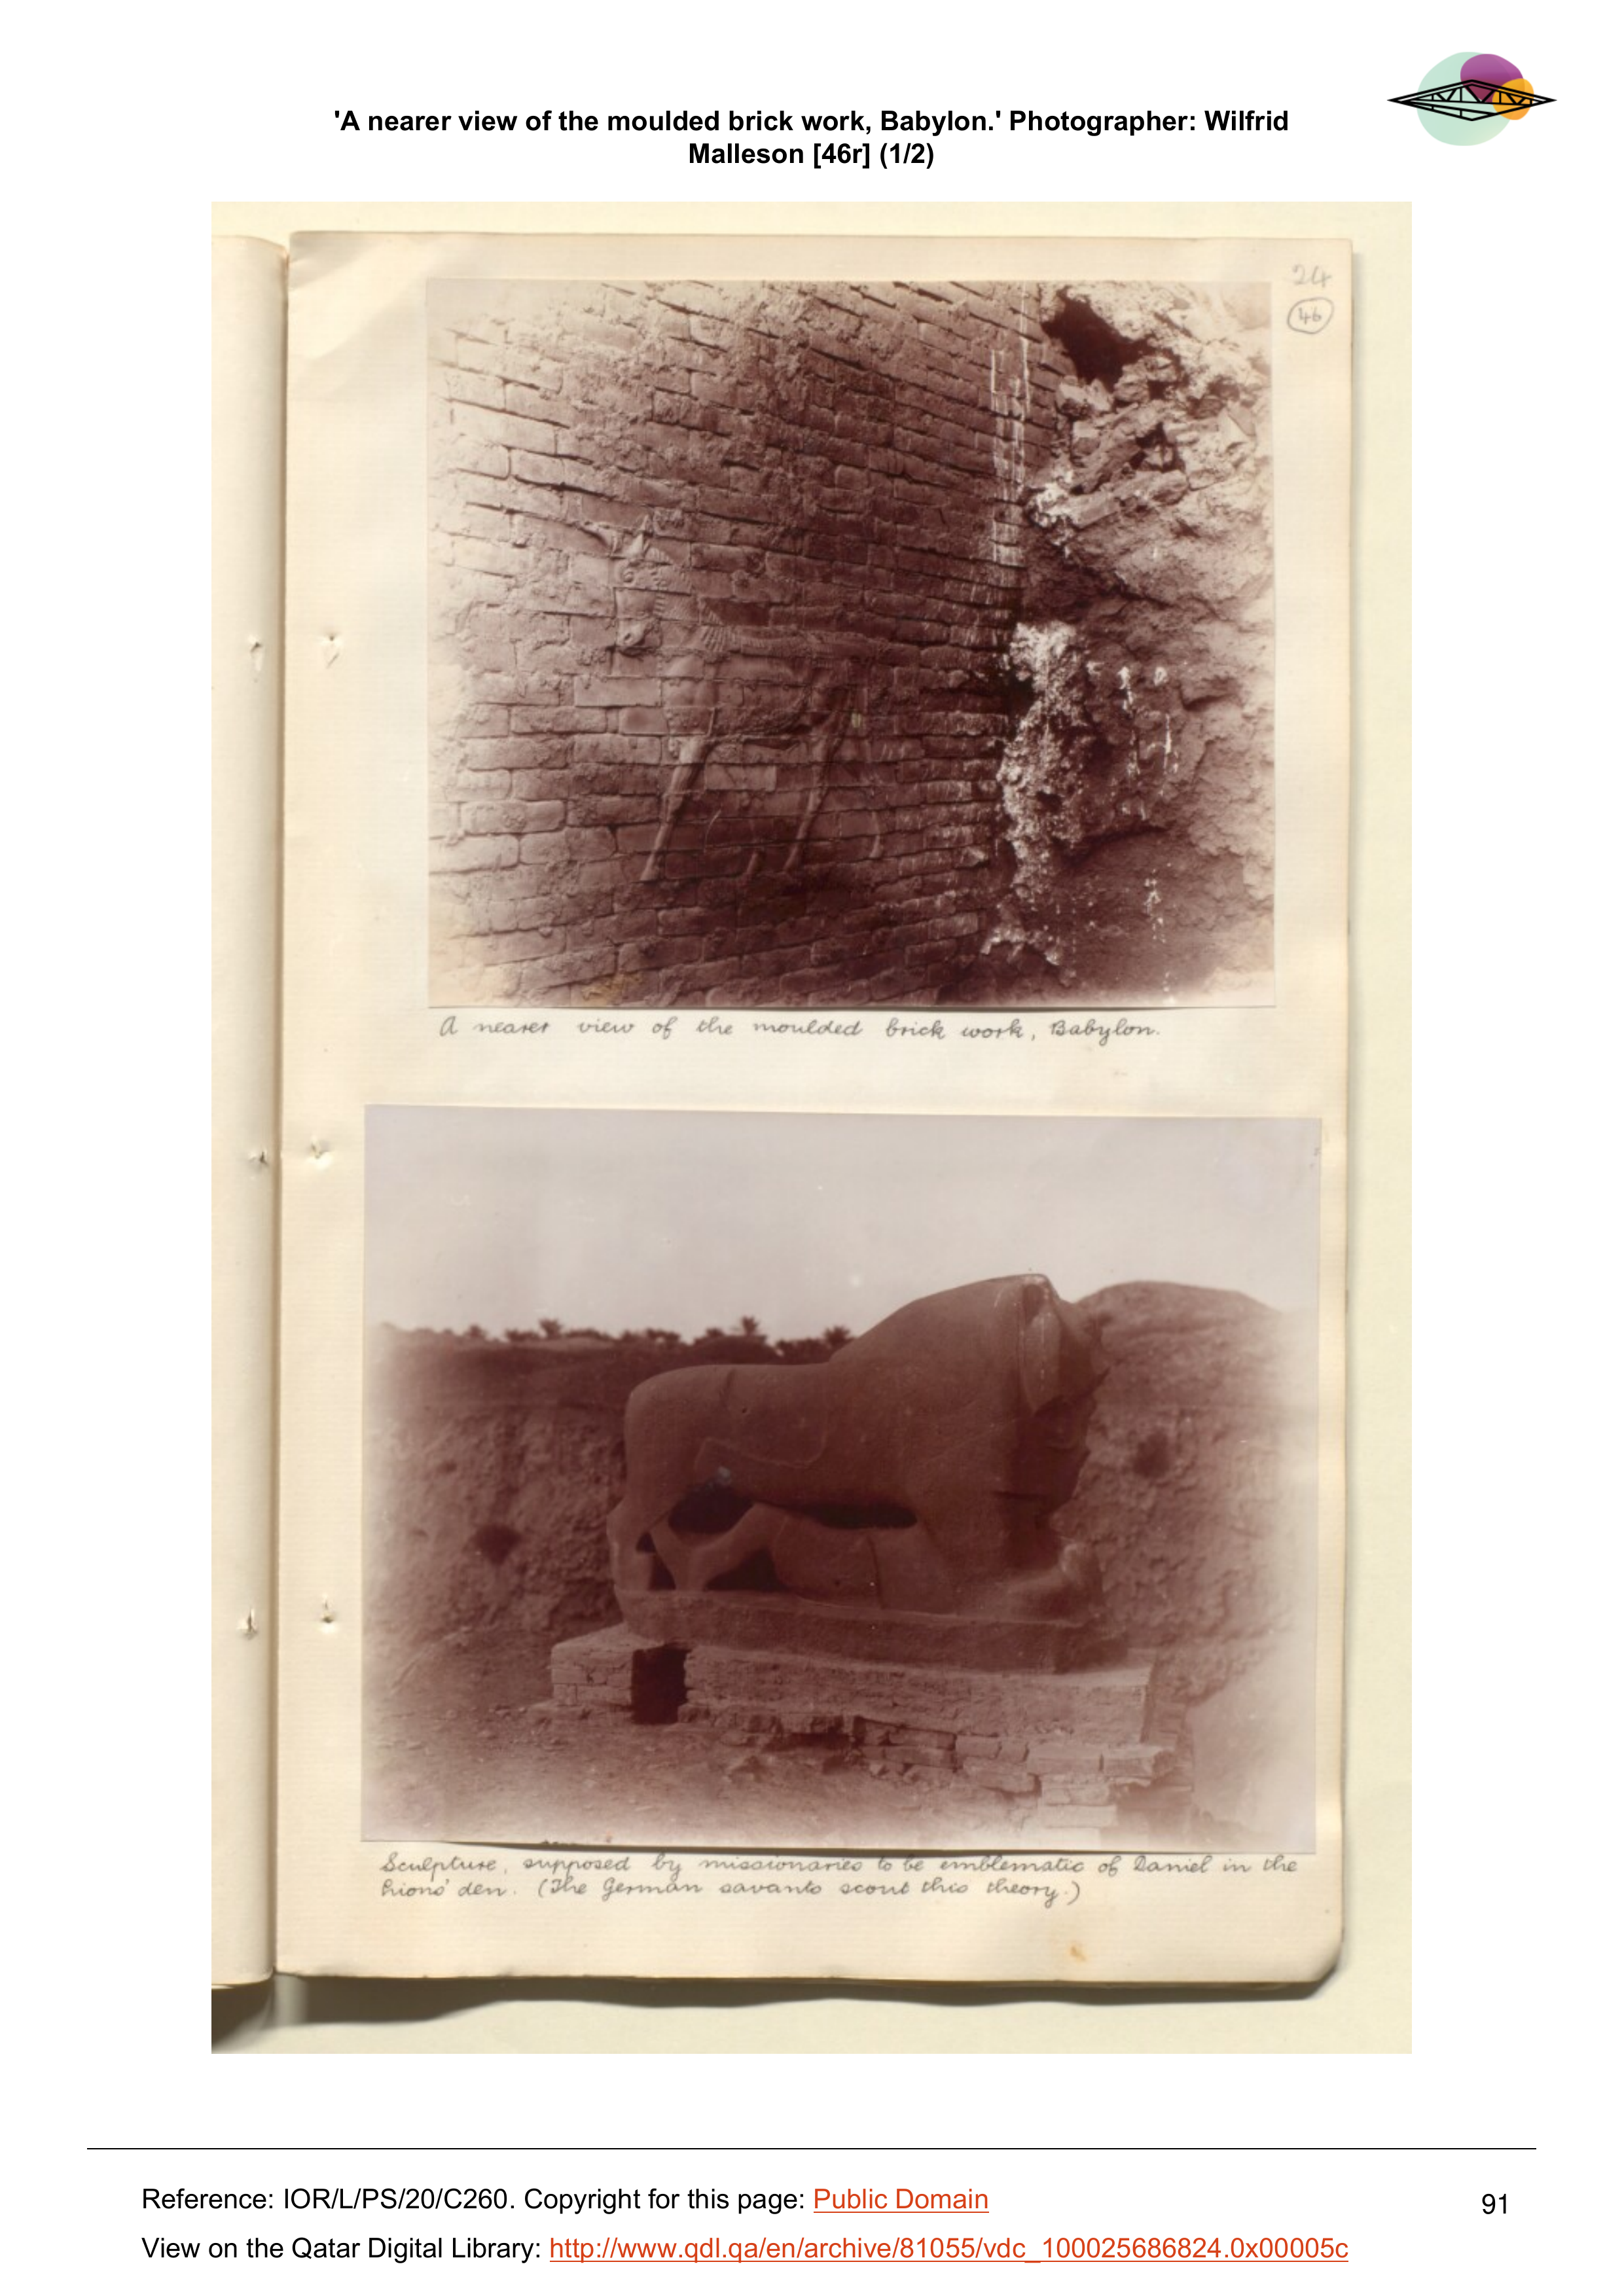 'A nearer view of the moulded brick work, Babylon.' Photographer: Wilfrid
Malleson [46r] (1/2)
24
46
A nearer view of the moulded brick work, Babylon.
Sculpture, supposed by missionaries to be emblematic of Daniel in the
Lions' den. (The German savants scout this theory.)
Reference: IOR/L/PS/20/C260. Copyright for this page: Public Domain
91
View on the Qatar Digital Library: http://www.qdl.qa/en/archive/81055/vdc_100025686824.0x00005c